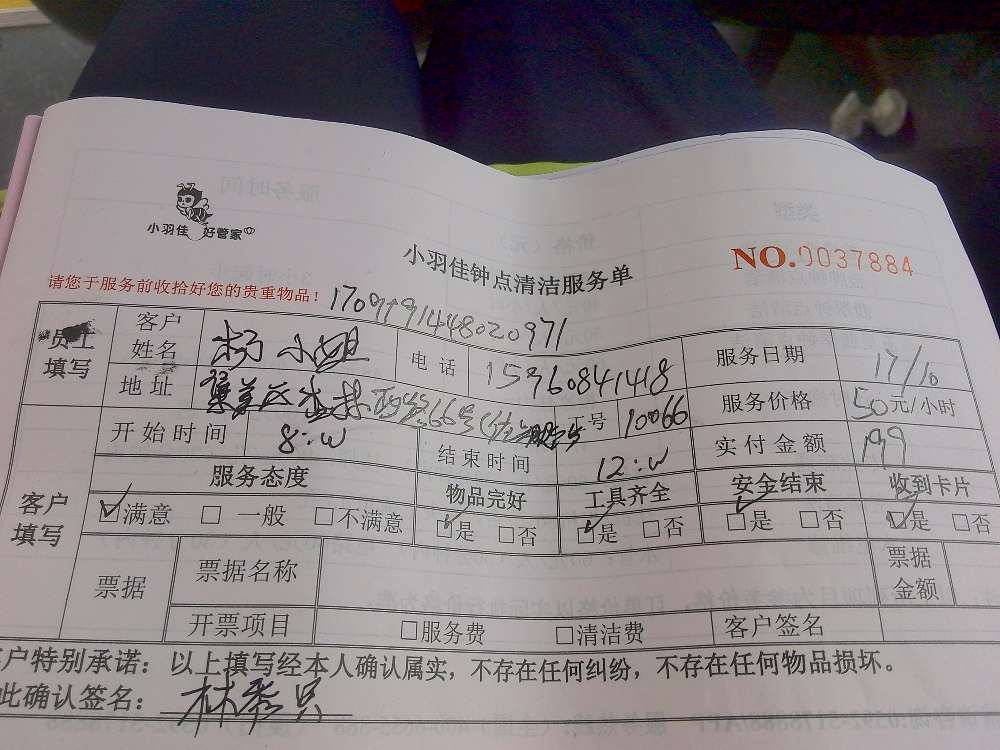 小羽佳 好管家
小羽佳钟点清洁服务单
NO.0037884
请您于服务前收拾好您的贵重物品！
1709191448020971
员工填写
客户姓名 杨小姐 电话 15960841418 服务日期 17/10
地址 集美区杏林西路66号 工号 10066 服务价格 50元/小时
开始时间 8:00 结束时间 12:00 实付金额 199
客户填写
服务态度 物品完好 工具齐全 安全结束 收到卡片
☑满意 □一般 □不满意 ☑是 □否 ☑是 □否 ☑是 □否 ☑是 □否
票据 票据名称 票据金额
开票项目 □服务费 □清洁费 客户签名
户特别承诺：以上填写经本人确认属实，不存在任何纠纷，不存在任何物品损坏。
此确认签名：林秀